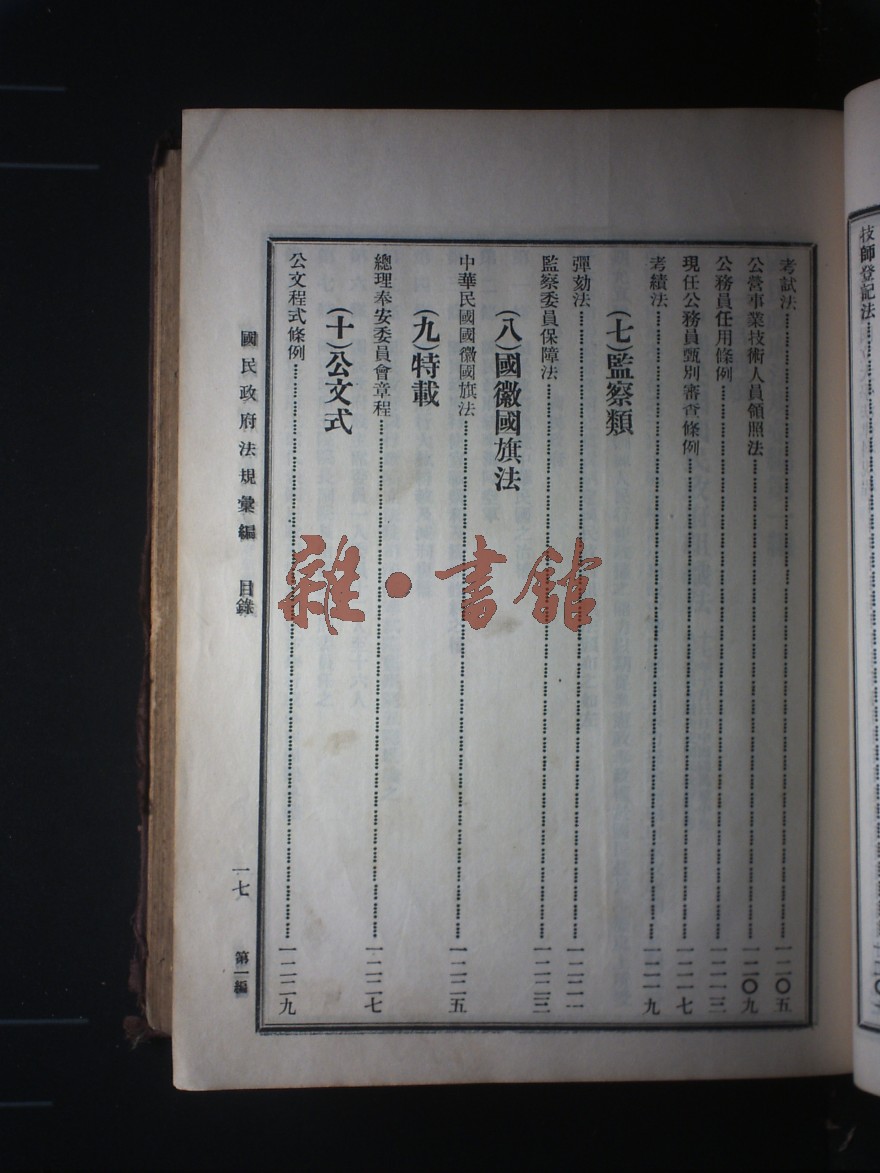 技師登記法
考試法……一二〇五
公營事業技術人員領照法……一二〇九
公務員任用條例……一二一三
現任公務員甄別審查條例……一二一七
考績法……一二一九
(七)監察類
彈劾法……一二二一
監察委員保障法……一二二三
(八)國徽國旗法
中華民國國徽國旗法……一二二五
(九)特載
總理奉安委員會章程……一二二七
(十)公文式
公文程式條例……一二二九
國民政府法規彙編 目錄 一七 第一編
雜·書館